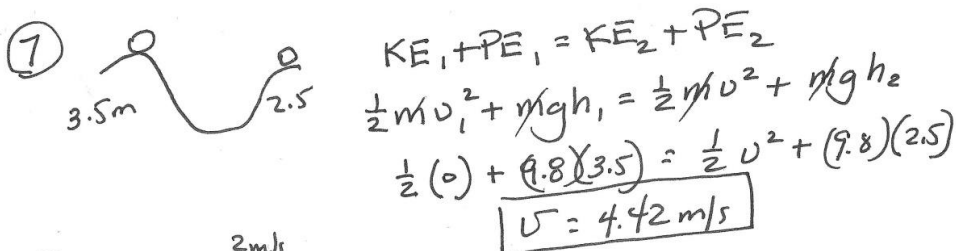 7
KE₁ + PE₁ = KE₂ + PE₂
3.5m
2.5
½mv₁² + mgh₁ = ½mv² + mgh₂
½(0) + (9.8)(3.5) = ½v² + (9.8)(2.5)
v = 4.42 m/s
2m/s